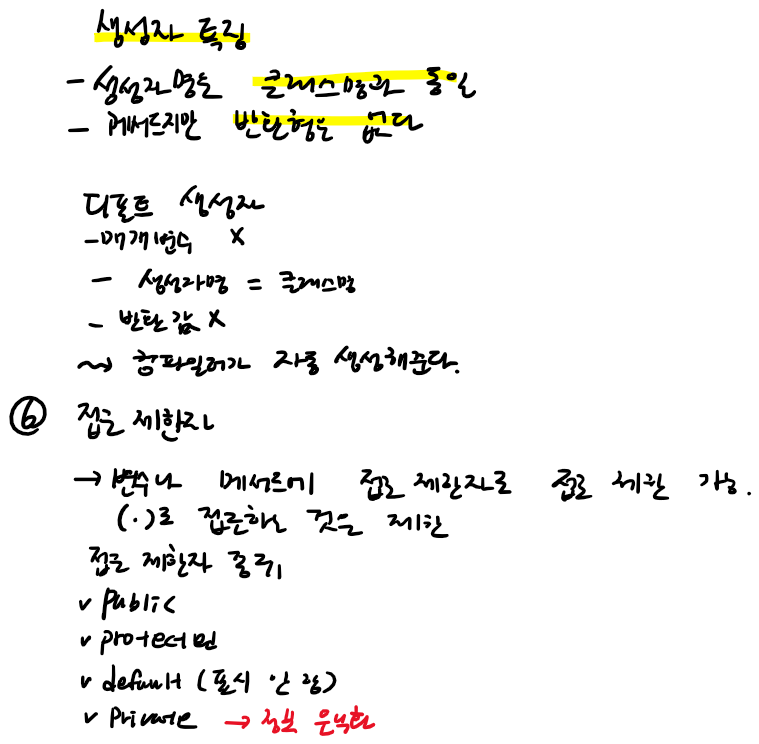 생성자 특징
- 생성자명은 클래스명과 동일
- 메서드지만 반환형은 없다
디폴트 생성자
- 매개변수 X
- 생성자명 = 클래스명
- 반환 값 X
~> 컴파일러가 자동 생성해준다.
⑥ 접근 제한자
→ 변수나 메서드에 접근 제한자로 접근 제한 가능.
(.)로 접근하는 것을 제한
접근 제한자 종류
v public
v protected
v default (표시 안 함)
v private → 정보 은닉화